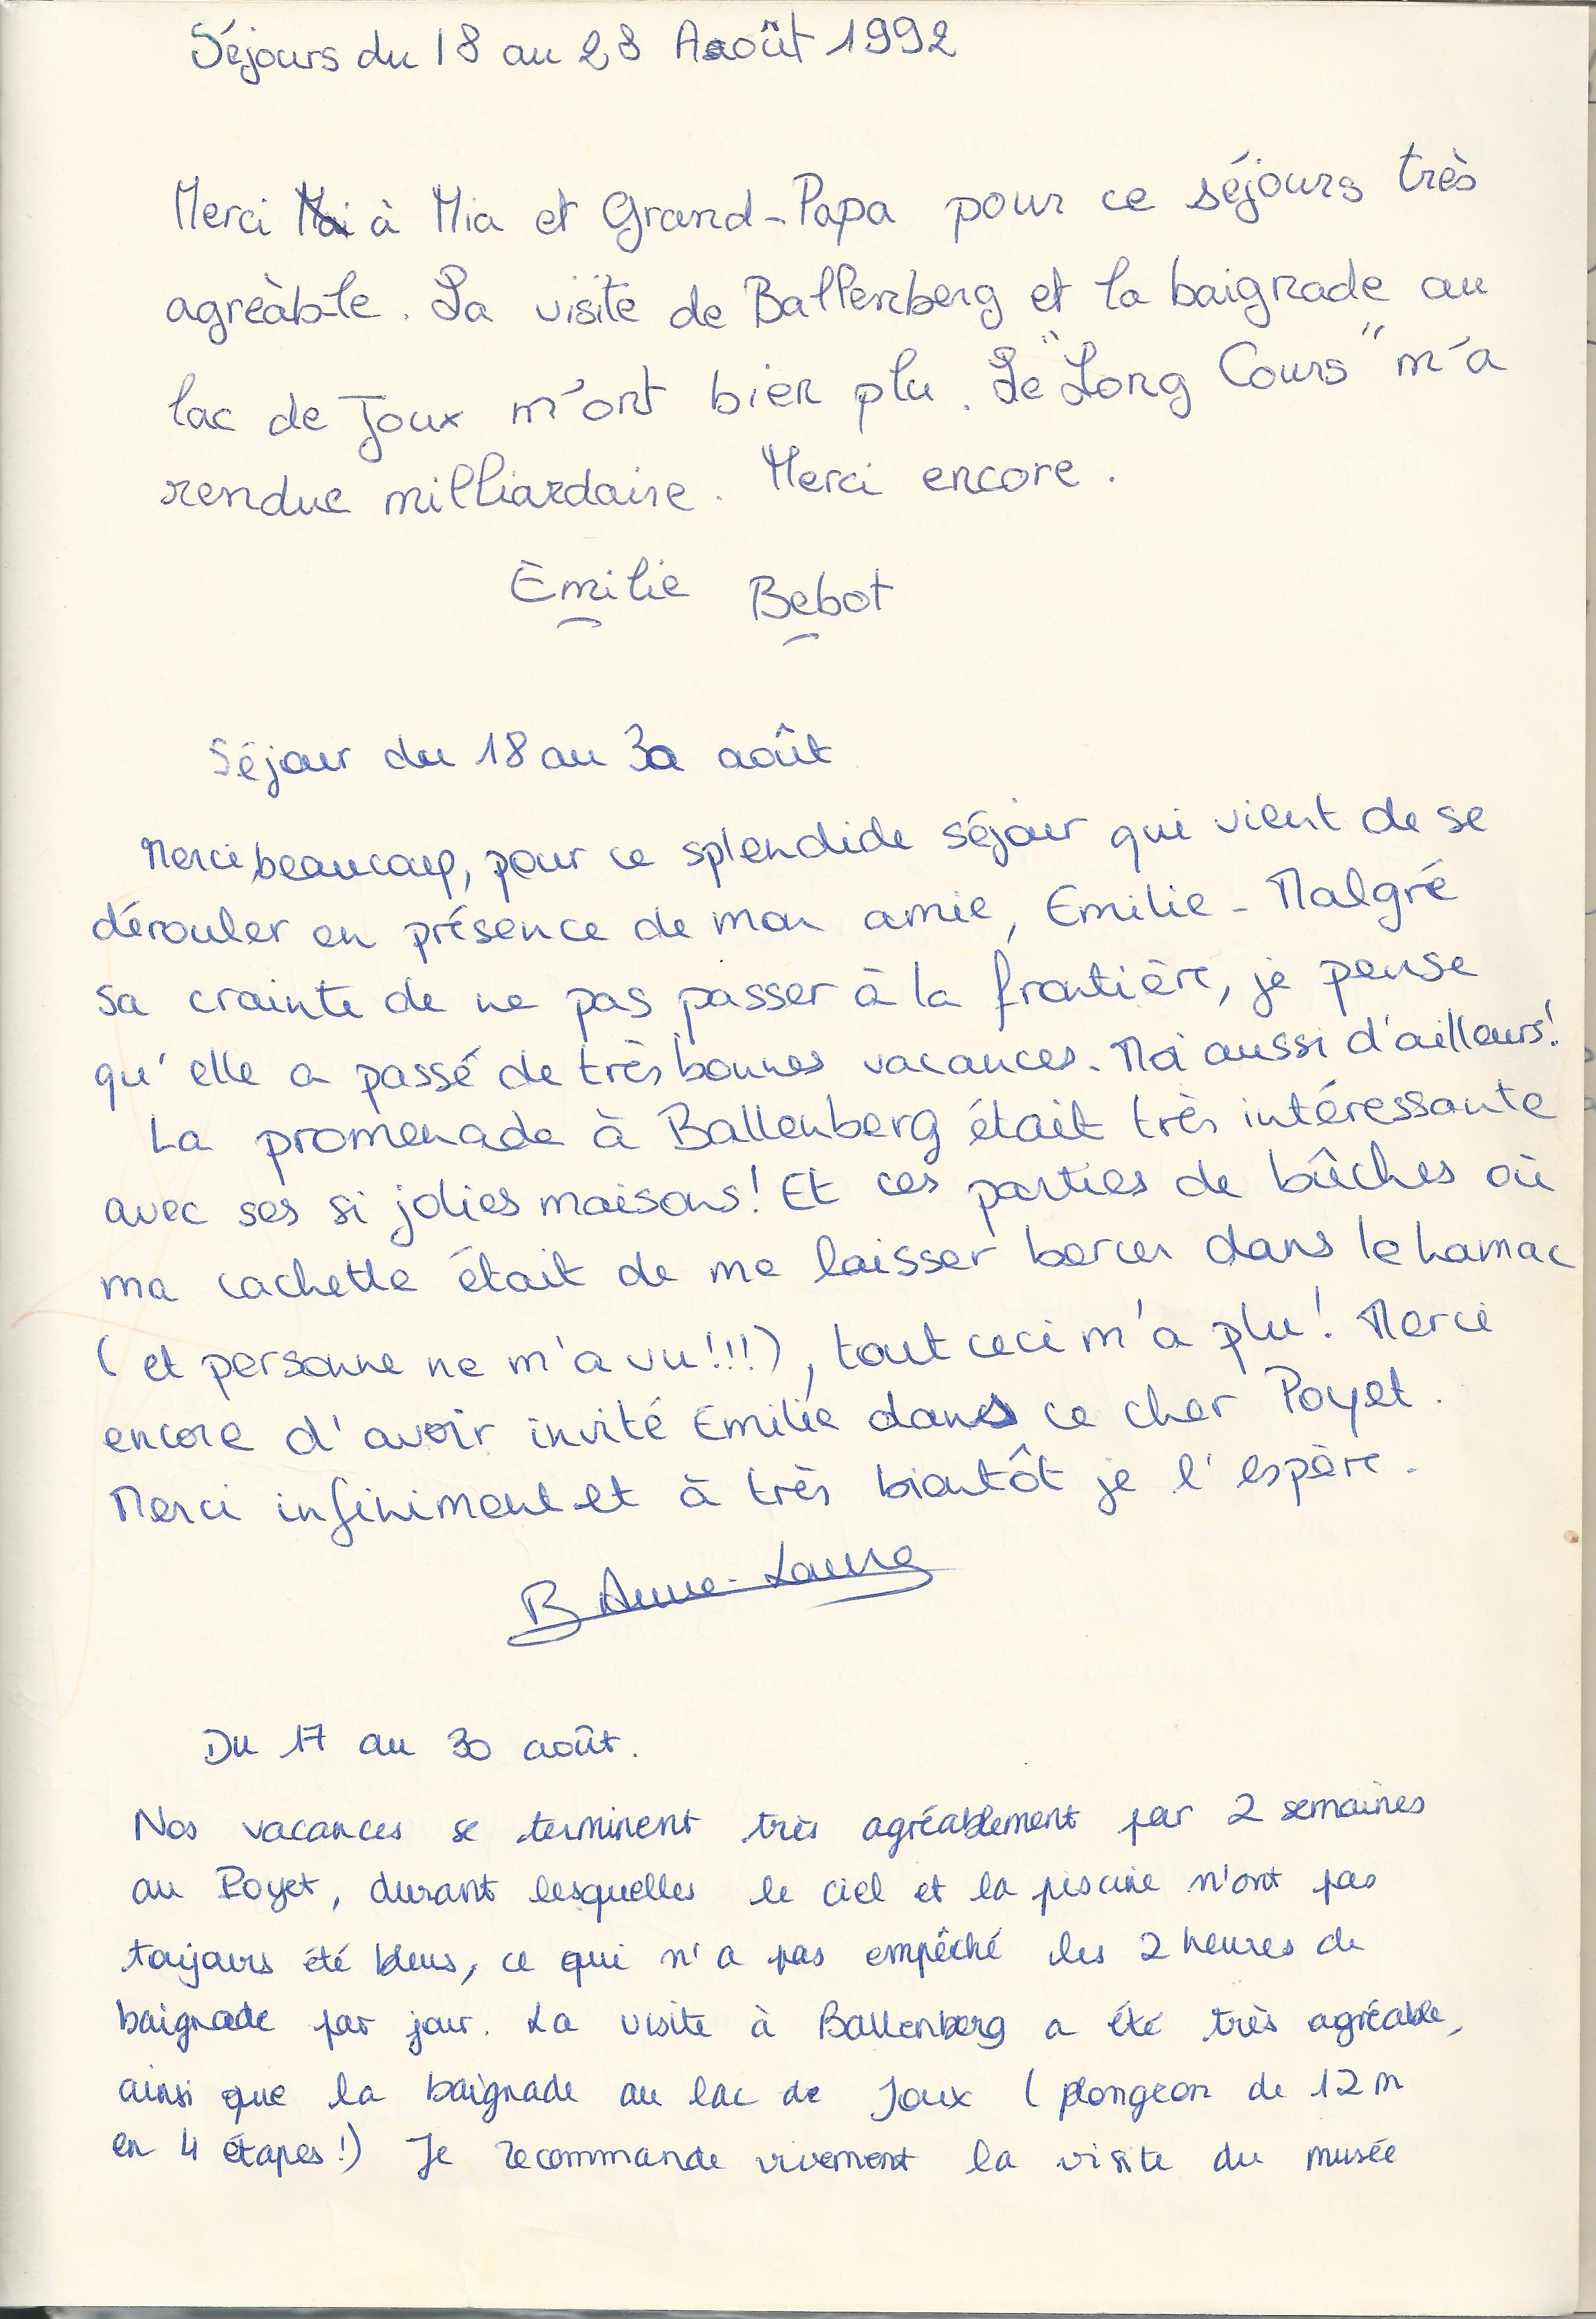 Séjours du 18 au 28 Août 1992
Merci à Mia et Grand-Papa pour ce séjours très
agréable. La visite de Ballenberg et la baignade au
lac de Joux m'ont bien plu. Le "Long Cours" m'a
rendue milliardaire. Merci encore.
Èmilie Bebot
Séjour du 18 au 30 août
Merci beaucoup, pour ce splendide séjour qui vient de se
dérouler en présence de mon amie, Emilie - Malgré
sa crainte de ne pas passer à la frontière, je pense
qu'elle a passé de très bonnes vacances. Moi aussi d'ailleurs!
La promenade à Ballenberg était très intéressante
avec ses si jolies maisons! Et ces parties de bûches où
ma cachette était de me laisser bercer dans le hamac
(et personne ne m'a vu!!!), tout ceci m'a plu! Merci
encore d'avoir invité Emilie dans ce cher Poyet.
Merci infiniment et à très bientôt je l'espère.
B Anne-Laure
Du 17 au 30 août.
Nos vacances se terminent très agréablement par 2 semaines
au Poyet, durant lesquelles le ciel et la piscine n'ont pas
toujours été bleus, ce qui n'a pas empêché les 2 heures de
baignade par jour. La visite à Ballenberg a été très agréable,
ainsi que la baignade au lac de Joux (plongeon de 12 m
en 4 étapes!) Je recommande vivement la visite du musée